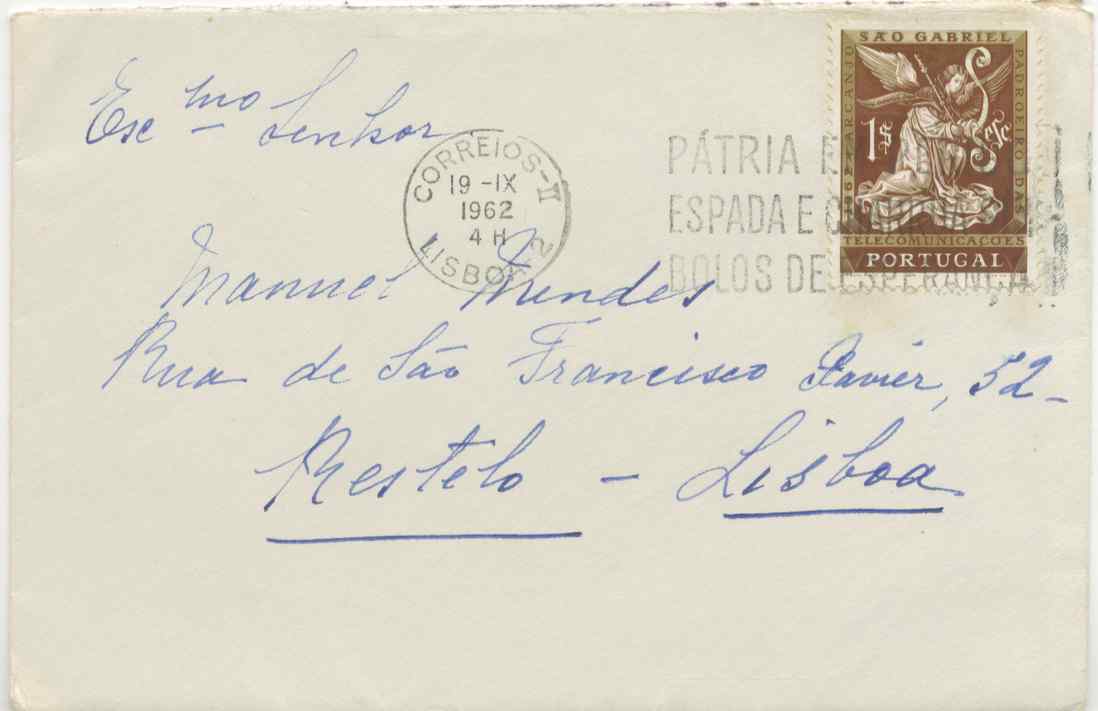 Exc mo Senhor
Manuel Mendes
Rua de São Francisco Xavier, 52-
Restelo - Lisboa
CORREIOS-II
19-IX
1962
4 H
LISBOA 2
PÁTRIA E
ESPADA E
BOLOS DE ESPERANÇA
SÃO GABRIEL
ARCANJO
PADROEIRO DAS
TELECOMUNICAÇOES
1$
PORTUGAL